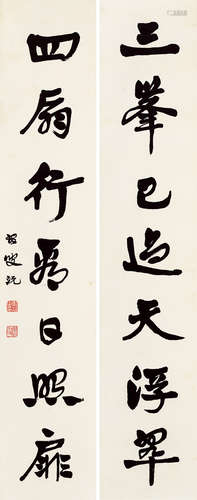 三峯已過天浮翠
四扇行看日照扉